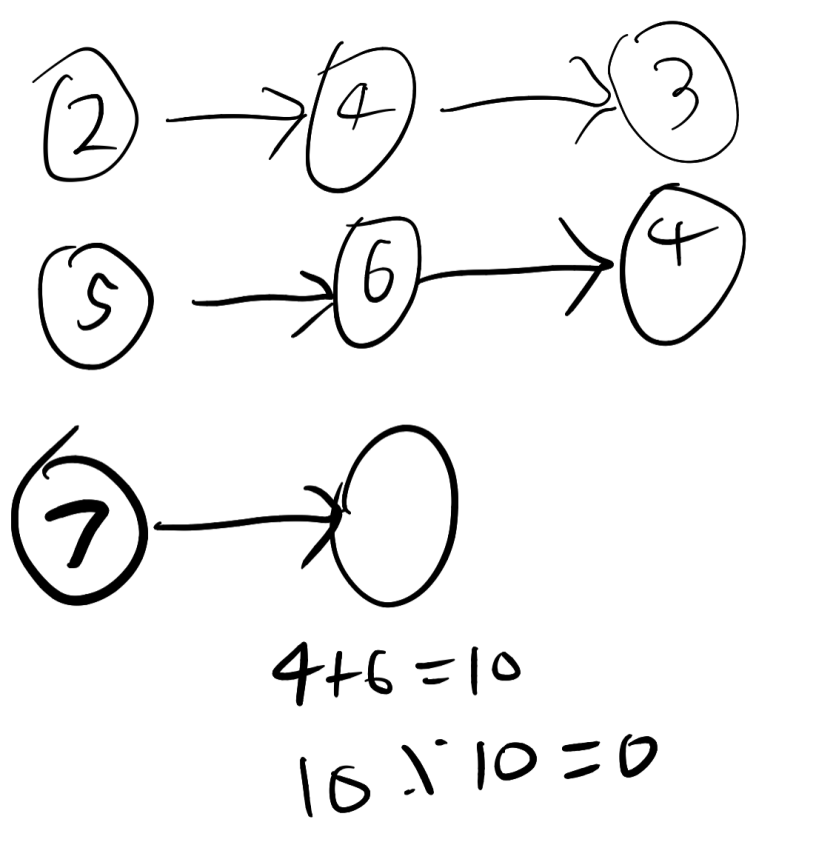 2 4 3
5 6 4
7
4+6=10
10 % 10=0